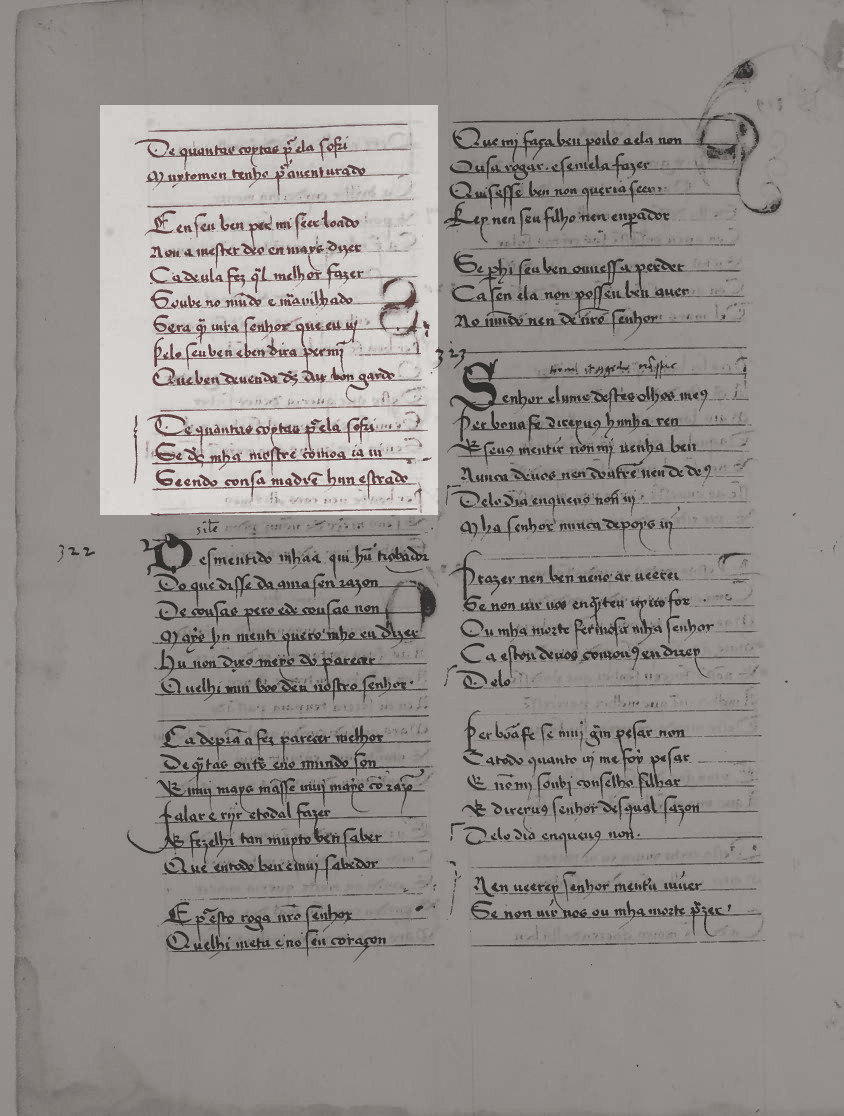 De quantas coytas pˢ ela sofri
Muytomen tenho pˢ auenturado
E en seu ben per mi seer loado
Non a mester deo en mays dizer
Ca deula fez q̄l melhor fazer
Soube no mūdo e m̃auilhado
Sera q̄ uira senhor que eu ui
Pelo seu ben eben dira per mī
Que ben deuenda d's̄ dar bon grado
De quantas coytas pˢ ela sofri
Se d's̄ mha mostre comoa ia ui
Seendo con sa madrē hun estrado
site
322
Desmentido mhaa qui hū trobador
Do que disse da ama sen razon
De cousas pero e de cousas non
Mays hu menti quero mho eu dizer
Hu non dixo meyo do parecer
Quelhi mui boo deu nostro senhor
Ca depra a fez parecer melhor
De q̄tas outˢs eno mundo son
E mui mays māsse mui mays cō razō
Falar e rijr e todal fazer
E fezelhi tan muyto ben saber
Que en todo ben e mui sabedor
E pˢ esto rogo nr̄o senhor
Quelhi meta eno seu coraçon
Que mj faça ben poilo a ela non
Ousa rogar. e semela fazer
Quisesse ben non queria seer
Rey nen seu filho nen enp̄ador
Se per hi seu ben ouuessa perder
Ca sen ela non posseu ben auer
No mūdo nen de nr̄o senhor
323
Senhor e lume destes olhos me9
Per bona fe direyu9 hunha ren
E seu9 mentir non mj uenha ben
Nunca de uos nen doutrē nen de de9
Delo dia en que u9 non ui
Mha senhor nunca depoys ui
Prazer nen ben neno ar ueerei
Se non uir uos en q̄nteu uyuo for
Ou mha morte fermosa mha senhor
Ca estou de uos como u9 en direy
Delo
Per boā fe se mui grn pesar non
Ca todo quanto ui me foy pesar
E nō mi soubi conselho filhar
E direyu9 senhor des qual sazon
Delo dia en que u9 non.
Nen ueerey senhor mentrˢ uiuer
Se non uir uos ou mha morte pˢzer